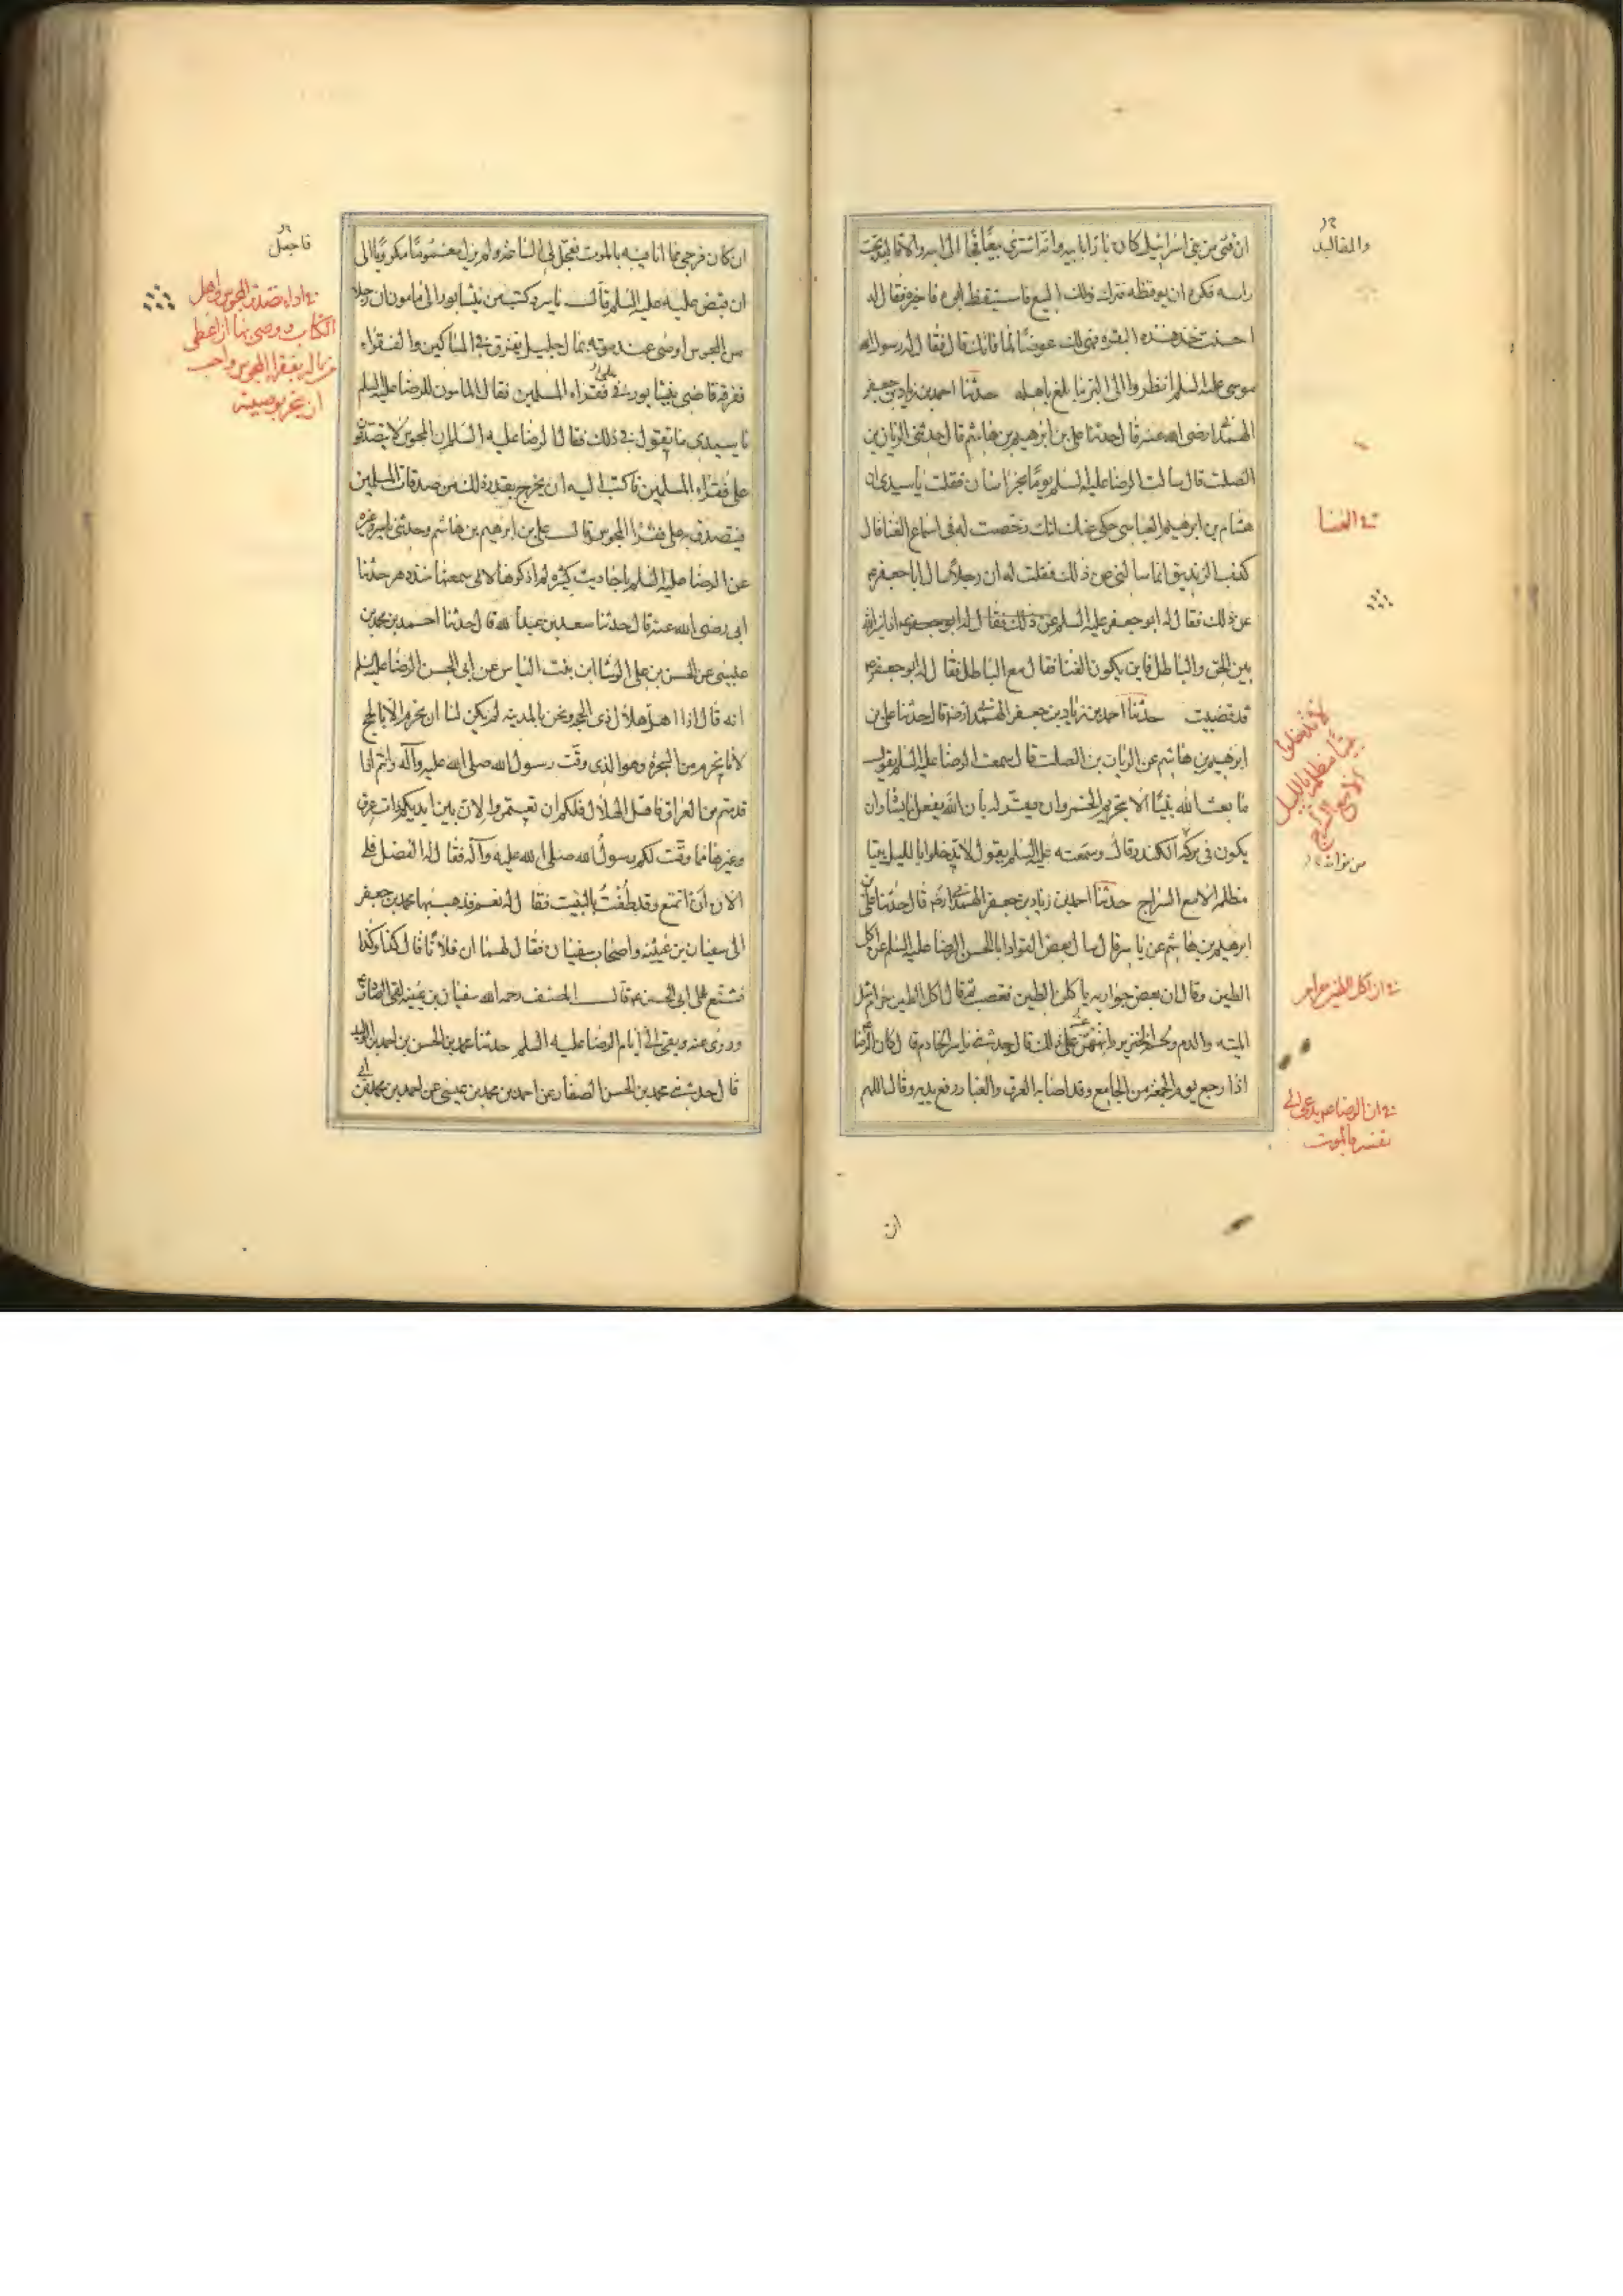 ان فتى من بني اسرائيل كان بارا بابيه وانه اشترى بيعا فجا الى ابيه والاقاليد تحت
راسه فكره ان يوقظه فترك ذلك البيع فاستيقظ ابوه فاخبره فقال له
احسنت خذ هذه البقره فهي لك عوضا لما فاتك قال فقال له رسول الله
موسى عليه السلم انظروا الى البر ما بلغ باهله حدثنا احمد بن زياد بن جعفر
الهمدانى رضى الله عنه قال حدثنا على بن ابرهيم بن هاشم قال حدثنى الريان بن
الصلت قال سالت الرضا عليه السلم يوما بخراسان فقلت يا سيدى ان
هشام بن ابرهيم العباسى حكى عنك انك رخصت له فى استماع الغنا فقال
كذب الزنديق انما سالنى عن ذلك فقلت له ان رجلا سال ابا جعفر ع
عن ذلك فقال له ابو جعفر عليه السلم عن ذلك فقال له ابو جعفر ع اذا ميز الله
بين الحق والباطل فاين يكون الغنا فقال مع الباطل فقال له ابو جعفر ع
قد قضيت حدثنا احمد بن زياد بن جعفر الهمدانى رضه قال حدثنا على بن
ابرهيم بن هاشم عن الريان بن الصلت قال سمعت الرضا عليه السلم يقول
ما بعث الله نبيا الا بتحريم الخمر وان يقر له بان الله يفعل ما يشا وان
يكون فى تركه الكندر قال وسمعته عليه السلم يقول لا تدخلوا بالليل بيتا
مظلما الا مع السراج حدثنا احمد بن زياد بن جعفر الهمدانى رضه قال حدثنا على بن
ابرهيم بن هاشم عن ياسر قال سال بعض القواد ابا الحسن الرضا عليه السلم عن اكل
الطين وقال ان بعض جواريه ياكلن الطين فغضب ثم قال اكل الطين حرام مثل
الميته والدم ولحم الخنزير فانههن عن ذلك قال وحدثنى ياسر الخادم قال كان الرضا ع
اذا رجع يوم الجمعة من الجامع وقد اصابه العرق والغبار رفع يديه وقال اللهم
والمقاليد
في الغنا
لا تدخلوا
بيتا مظلما بالليل
الا مع السراج
في ان اكل الطين حرام
في ان الرضا ع يدعى الى
نفسه بالموت
ان
ان كان فرجى مما انا فيه بالموت فعجل لى الساعة ولم يزل مغموما مكروبا الى
ان قبض عليه السلم قال ياسر وكتب من نيشابور الى مامون ان رجلا
من المجوس اوصى عند موته بمال جليل يفرق فى المساكين والفقراء
ففرقه قاضى نيشابور فى فقراء المسلمين فقال المامون للرضا عليه السلم
يا سيدى ما تقول فى ذلك فقال الرضا عليه السلم ان المجوس لا يتصدقون
على فقراء المسلمين فاكتب اليه ان يخرج بقدر ذلك من صدقات المسلمين
فيتصدق به على فقرا المجوس وقال على بن ابرهيم بن هاشم وحدثنى ياسر وغيره
عن الرضا عليه السلم باحاديث كثيره لم اذكرها لانى سمعتها منذ دهر حدثنا
ابى رضى الله عنه قال حدثنا سعد بن عبد الله قال حدثنا احمد بن محمد بن
عيسى عن الحسن بن على الوشا ابن بنت الياس عن ابى الحسن الرضا عليه السلم
انه قال اذا اهل هلال ذى الحجه ونحن بالمدينه لم يكن لنا ان نحرم الا بالحج
لانا نحرم من الشجره وهو الذى وقت رسول الله صلى الله عليه وآله وانتم اذا
قدمتم من العراق فاهل الهلال فلكم ان تعتمروا لان بين ايديكم ذات عرق
وغيرها مما وقت لكم رسول الله صلى الله عليه وآله فقال له الفضل فلى
الان ان اتمتع وقد طفت بالبيت فقال له نعم فذهب بها محمد بن جعفر
الى سفيان بن عيينه واصحاب سفيان فقال لهم ان فلانا قال كذا وكذا
فشنع على ابى الحسن ع قال المصنف رحمه الله سفيان بن عيينه لقى الصادق ع
وروى عنه وبقى الى ايام الرضا عليه السلم حدثنا محمد بن الحسن بن احمد بن الوليد
قال حدثنى محمد بن الحسن الصفار عن احمد بن محمد بن عيسى عن احمد بن محمد بن ابى
فاجعل
الكتاب ووصى بها ان اعطى
من ماله بفقرا المجوس واجب